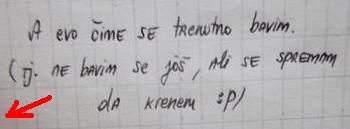 A evo čime se trenutno bavim.
(tj. ne bavim se još, Ali se spremam
da krenem :p)